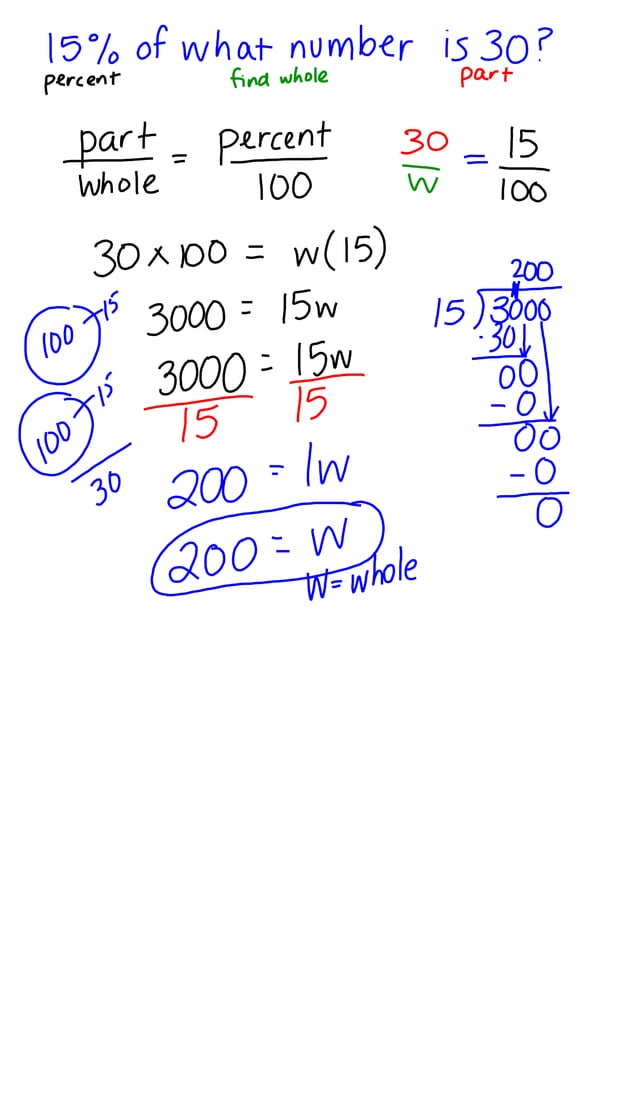 15% of what number is 30?
percent find whole part
part/whole = percent/100
30/w = 15/100
30 × 100 = w(15)
3000 = 15w
3000/15 = 15w/15
200 = 1w
200 = w
w = whole
100 15
100 15
30
200
15)3000
-30
00
-0
00
-0
0